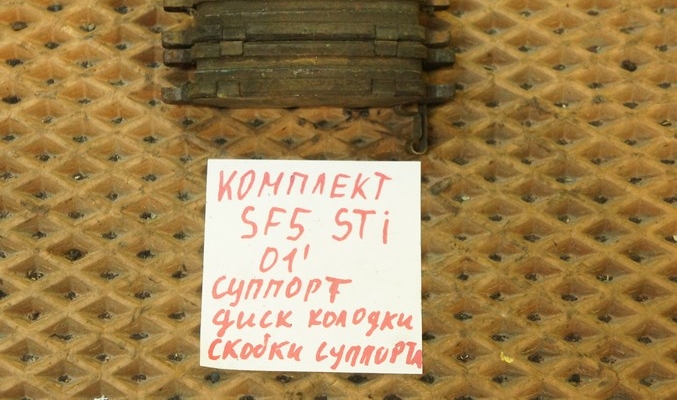 КОМПЛЕКТ
SF5 STi
01'
СУППОРТ
ДИСК КОЛОДКИ
СКОБКИ СУППОРТА